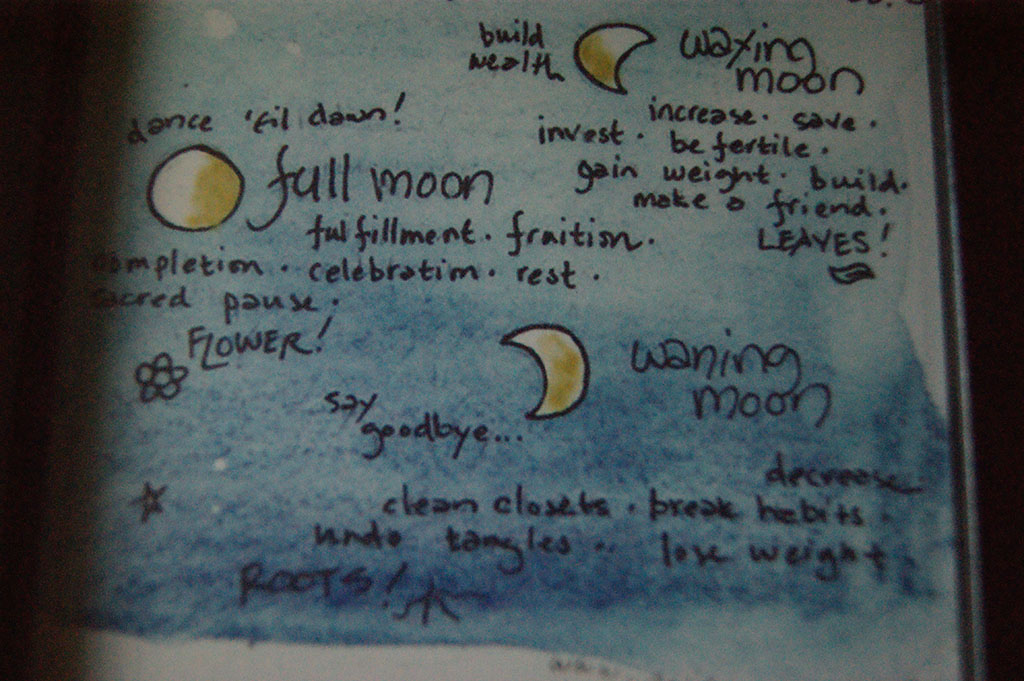 build
wealth
waxing
moon
increase. save.
invest. be fertile.
gain weight. build.
make a friend.
LEAVES!
dance 'til dawn!
full moon
fulfillment. fraition.
completion. celebration. rest.
sacred pause.
FLOWER!
waning
moon
say
goodbye...
decrease.
clean closets. break habits.
undo tangles.. lose weight.
ROOTS!